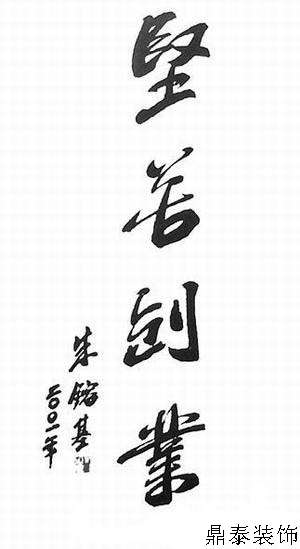 堅苦創業
朱鎔基
二〇〇一年
鼎泰装饰